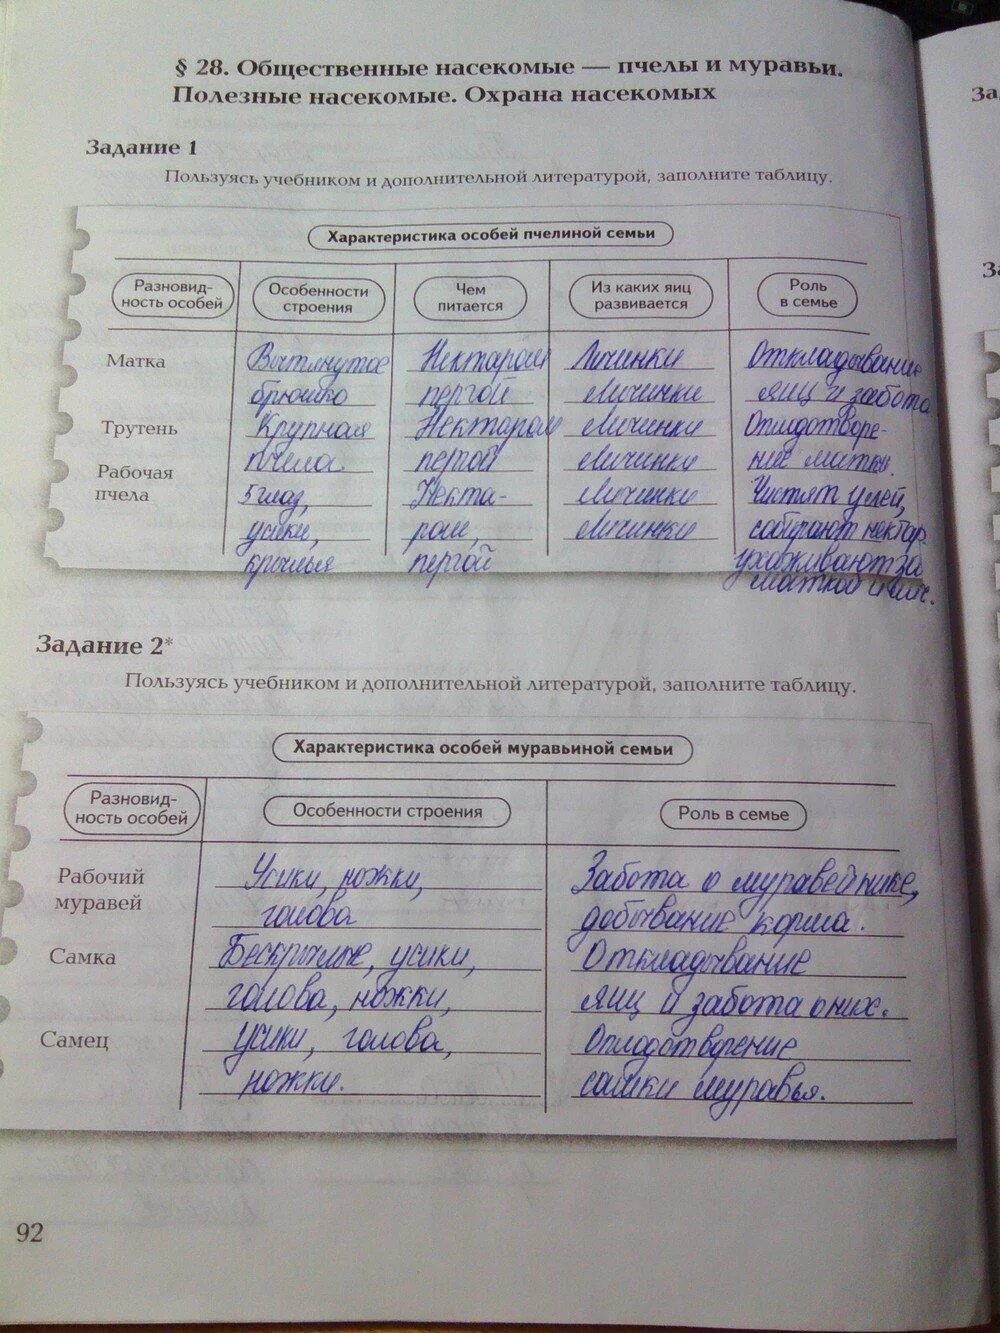 § 28. Общественные насекомые — пчелы и муравьи.
Полезные насекомые. Охрана насекомых
За
Задание 1
Пользуясь учебником и дополнительной литературой, заполните таблицу.
Характеристика особей пчелиной семьи
Разновид-
ность особей
Особенности
строения
Чем
питается
Из каких яиц
развивается
Роль
в семье
Матка
Вытянутое
брюшко
Нектаром
пергой
Личинки
Личинки
Откладывание
яиц и забота
Трутень
Крупная
пчела
Нектаром
пергой
Личинки
Личинки
Оплодотворе-
ние матки.
Рабочая
пчела
5 глаз,
усики,
крылья
Некта-
ром,
пергой
Личинки
Личинки
Чистят улей,
собирают нектар
ухаживают за
маткой и
Задание 2*
Пользуясь учебником и дополнительной литературой, заполните таблицу.
Характеристика особей муравьиной семьи
Разновид-
ность особей
Особенности строения
Роль в семье
Рабочий
муравей
Усики, ножки,
голова
Забота о муравейнике,
добывание корма.
Самка
Бескрылые, усики,
голова, ножки,
Откладывание
яиц и забота о них.
Самец
усики, голова,
ножки.
Оплодотворение
самки муравья.
92